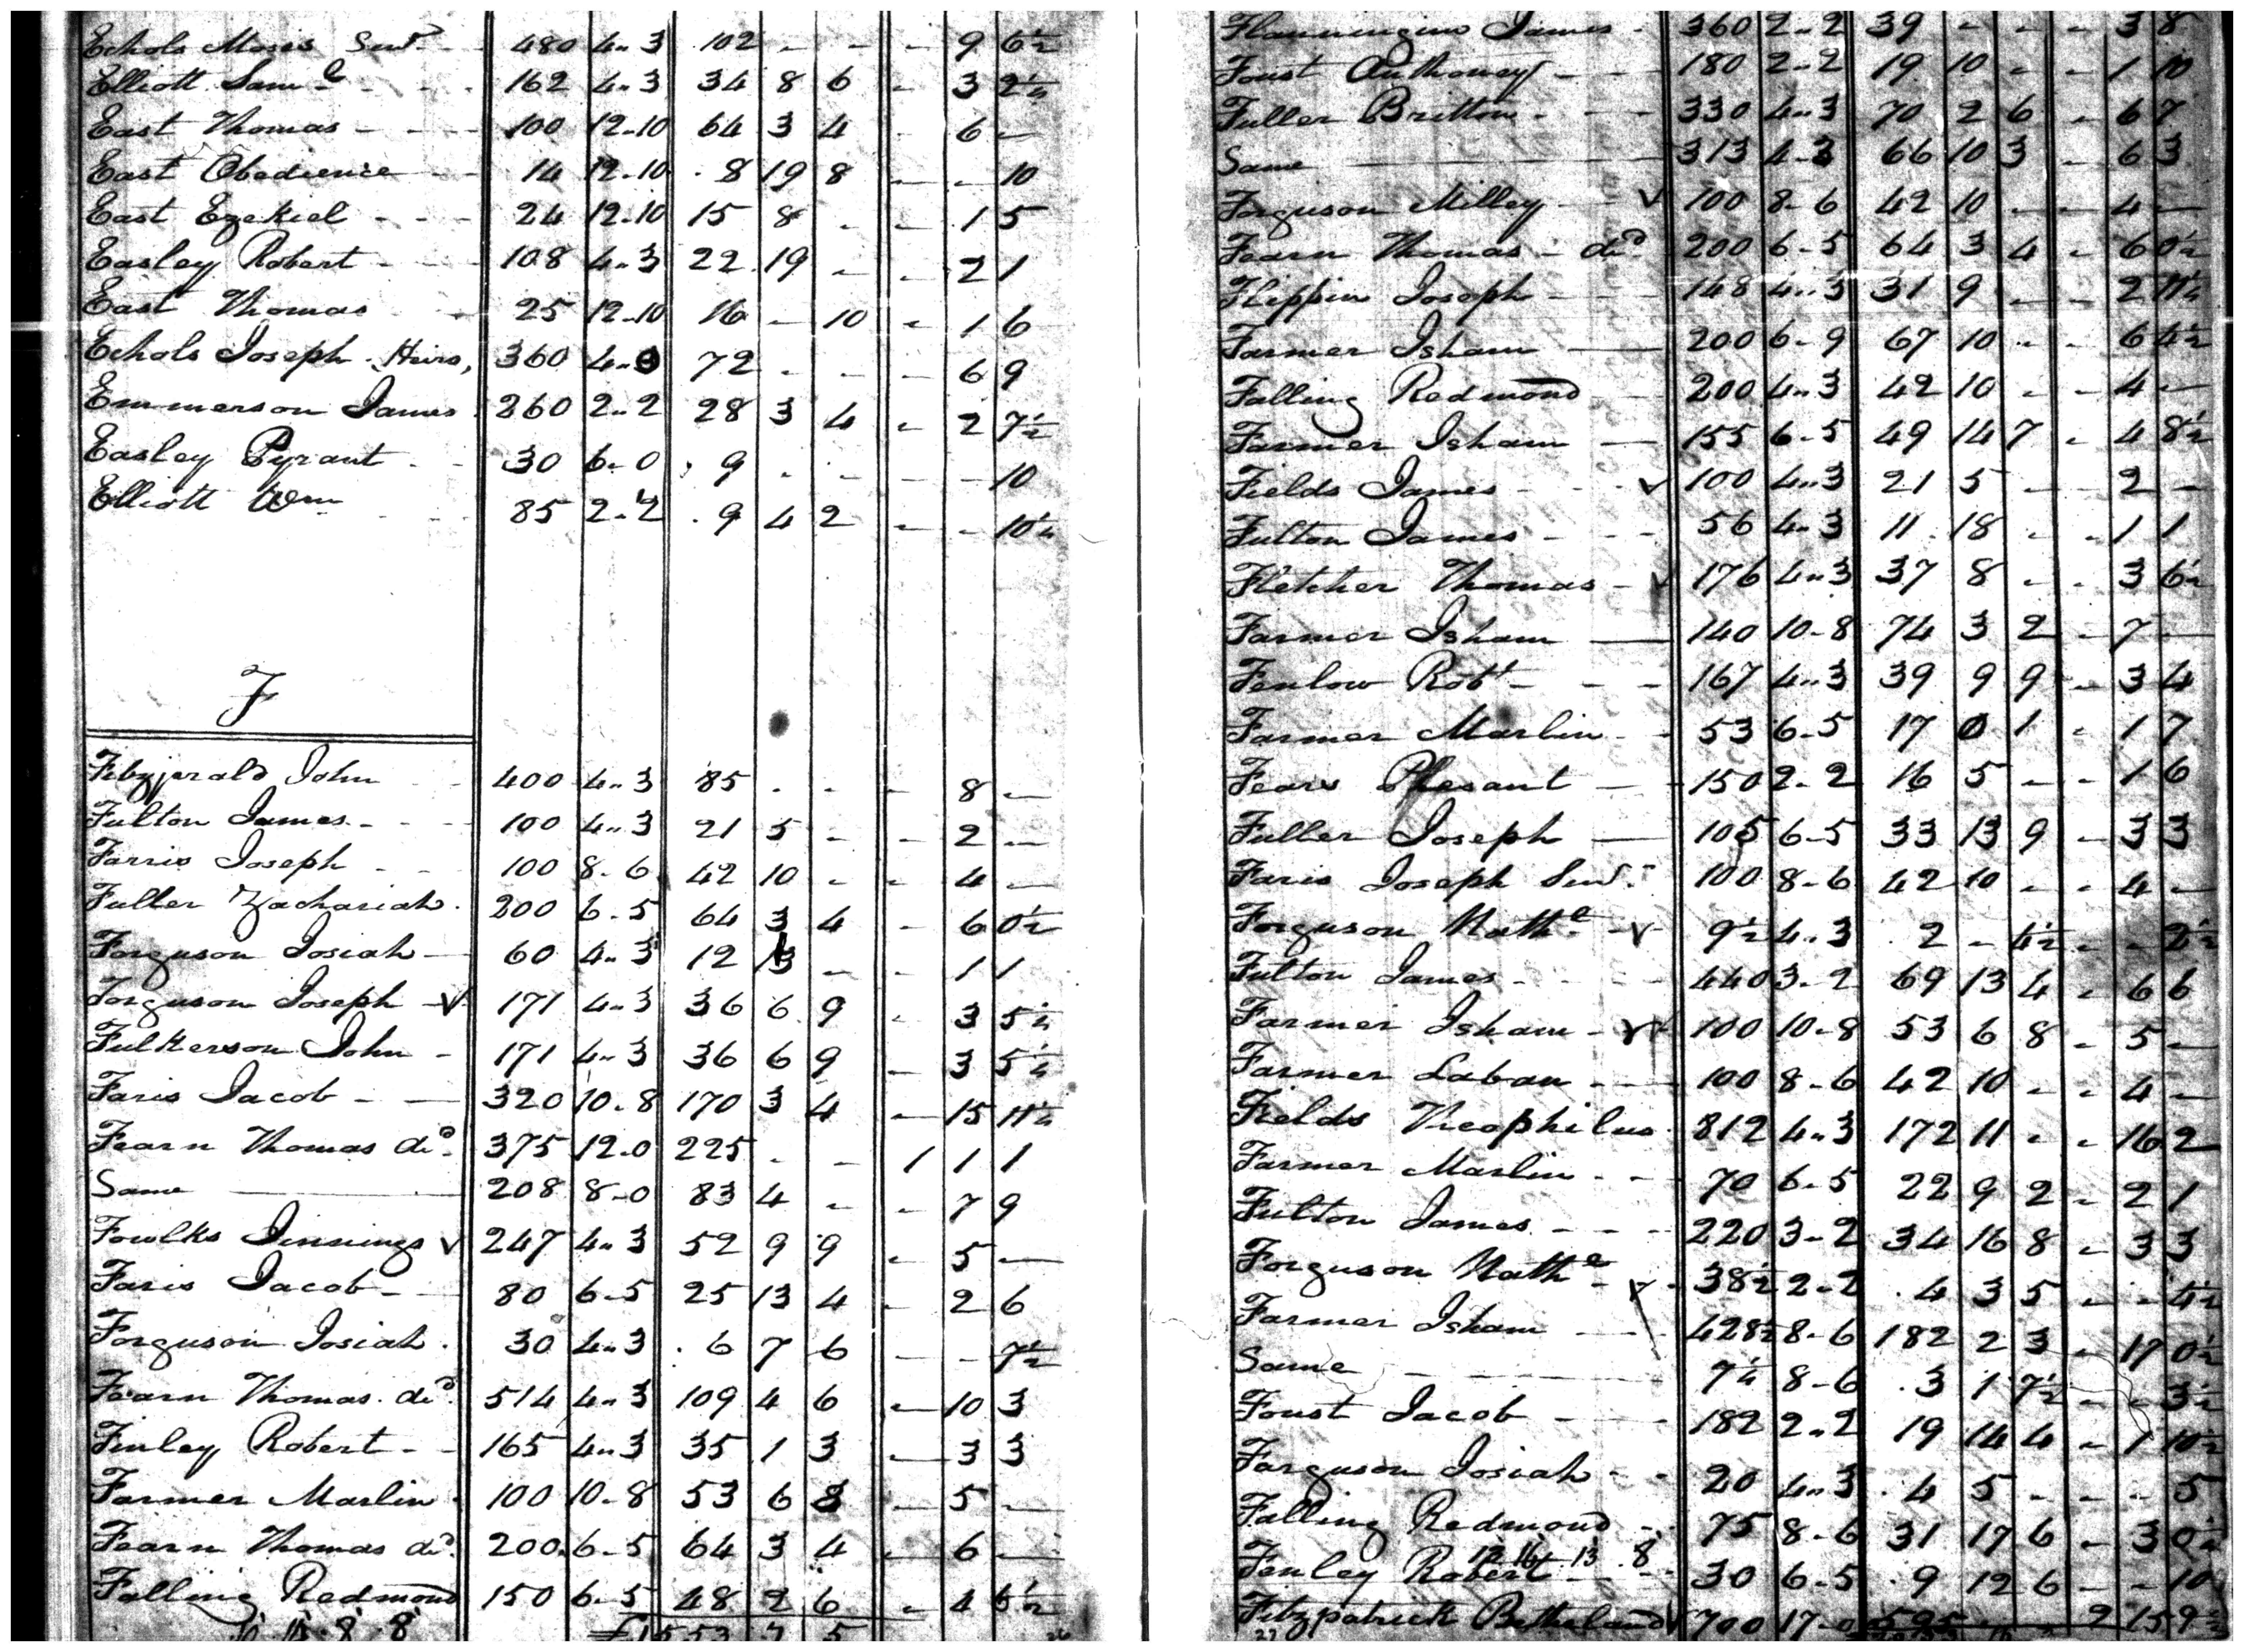 Echols Moses Senr. - 480 4"3 102 - - - 9 6½
Elliott Saml. - 162 4"3 34 8 6 - 3 2¼
East Thomas - - - 100 12-10 64 3 4 - 6 -
East Obedience - 14 12-10 8 19 8 - - 10
East Ezekiel - - - 24 12-10 15 8 - - 1 5
Easley Robert - - - 108 4"3 22 19 - - 2 1
East Thomas - 25 12-10 16 - 10 - 1 6
Echols Joseph Heirs, 360 4"0 72 - - - 6 9
Emmerson James 260 2"2 28 3 4 - 2 7½
Easley Pyrant - - 30 6-0 9 - - - - 10
Elliott Wm - - - 85 2-2 9 4 2 - - 10¼
F
Fitzjerald John - - 400 4"3 85 - - - 8 -
Fulton James - - - 100 4"3 21 5 - - 2 -
Farris Joseph - - 100 8-6 42 10 - - 4 -
Fuller Zachariah - 200 6-5 64 3 4 - 6 0½
Forguson Josiah - 60 4"3 12 15 - - 1 1
Forguson Joseph - v 171 4"3 36 6 9 - 3 5¼
Fulkerson John - 171 4"3 36 6 9 - 3 5¼
Faris Jacob - - 320 10-8 170 3 4 - 15 11¼
Fearn Thomas decd. 375 12-0 225 - - 1 1 1
Same - 208 8-0 83 4 - - 7 9
Fowlks Jinnings v 247 4"3 52 9 9 - 5 -
Faris Jacob - - 80 6-5 25 13 4 - 2 6
Forguson Josiah - 30 4"3 6 7 6 - - 7½
Fearn Thomas decd. 514 4"3 109 4 6 - 10 3
Finley Robert - - 165 4"3 35 1 3 - 3 3
Farmer Marlin - 100 10-8 53 6 8 - 5 -
Fearn Thomas decd. 200 6-5 64 3 4 - 6 -
Falling Redmond 150 6-5 48 2 6 - 4 6½
Flanningim James - 360 2-2 39 - - - 3 8
Foust Anthoney - - - 180 2-2 19 10 - - 1 10
Fuller Britton - - - 330 4"3 70 2 6 - 6 7
Same - 313 4-3 66 10 3 - 6 3
Forguson Milley - v 100 8-6 42 10 - - 4 -
Fearn Thomas - decd 200 6-5 64 3 4 - 6 0½
Flippin Joseph - - - 148 4"3 31 9 - - 2 11¼
Farmer Isham - 200 6-9 67 10 - - 6 4½
Falling Redmond - 200 4"3 42 10 - - 4 -
Farmer Isham - 155 6-5 49 14 7 - 4 8½
Fields James - - - v 100 4"3 21 5 - - 2 -
Fulton James - - - 56 4"3 11 18 - - 1 1
Fletcher Thomas - v 176 4"3 37 8 - - 3 6½
Farmer Isham - 140 10-8 74 3 2 - 7 -
Fenlow Robt - - - 167 4"3 39 9 9 - 3 4
Farmer Marlin - - 53 6-5 17 0 1 - 1 7
Fears Plesant - 150 2-2 16 5 - - 1 6
Fuller Joseph - 105 6-5 33 13 9 - 3 3
Faris Joseph Senr. - 100 8-6 42 10 - - 4 -
Forguson Nathl. - v - 9½ 4"3 2 - 4½ - - 2½
Fulton James - - - 440 3-2 69 13 4 - 6 6
Farmer Isham - v 100 10-8 53 6 8 - 5 -
Farmer Laban - - 100 8-6 42 10 - - 4 -
Fields Theophilus 812 4"3 172 11 - - 16 2
Farmer Marlin - - - 70 6-5 22 9 2 - 2 1
Fulton James - - - 220 3-2 34 16 8 - 3 3
Forguson Nathl. - v - 38½ 2-2 4 3 5 - - 4½
Farmer Isham - - 428½ 8-6 182 2 3 - 17 0½
Same - 7¼ 8-6 3 1 7½ - - 3½
Foust Jacob - - - 182 2"2 19 14 4 - 1 10½
Farguson Josiah - - 20 4"3 4 5 - - - 5
Falling Redmond - - 75 8-6 31 17 6 - 3 0½
Fenley Robert - - 30 6-5 9 12 6 - - 10
Fitzpatrick 700 17-0 595 2 15 9½